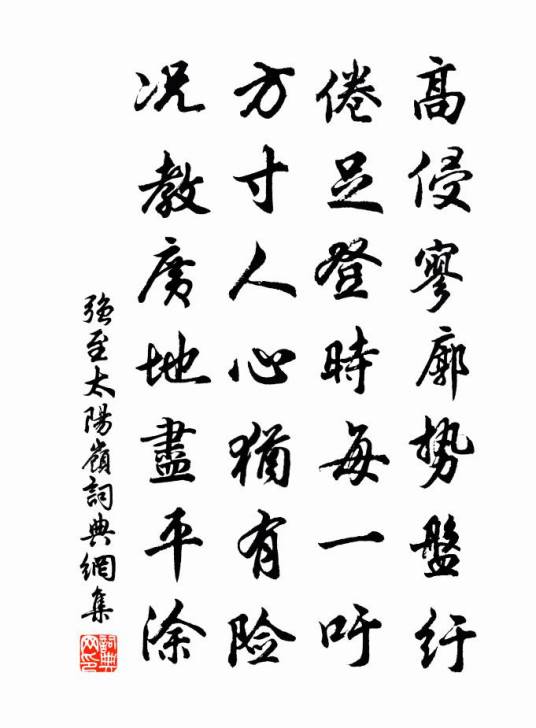 高侵寥廓势盤纡
倦足登時每一吁
方寸人心猶有险
况教廣地盡平除
强至太陽嶺詞典網集
詞典网印